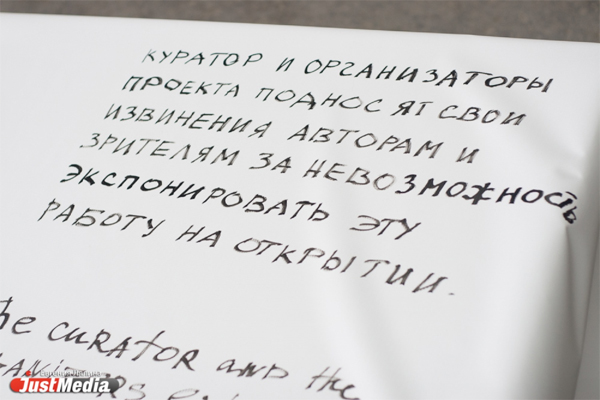 КУРАТОР И ОРГАНИЗАТОРЫ
ПРОЕКТА ПОДНОСЯТ СВОИ
ИЗВИНЕНИЯ АВТОРАМ И
ЗРИТЕЛЯМ ЗА НЕВОЗМОЖНОСТЬ
ЭКСПОНИРОВАТЬ ЭТУ
РАБОТУ НА ОТКРЫТИИ.
he CURATOR AND the
JustMedia